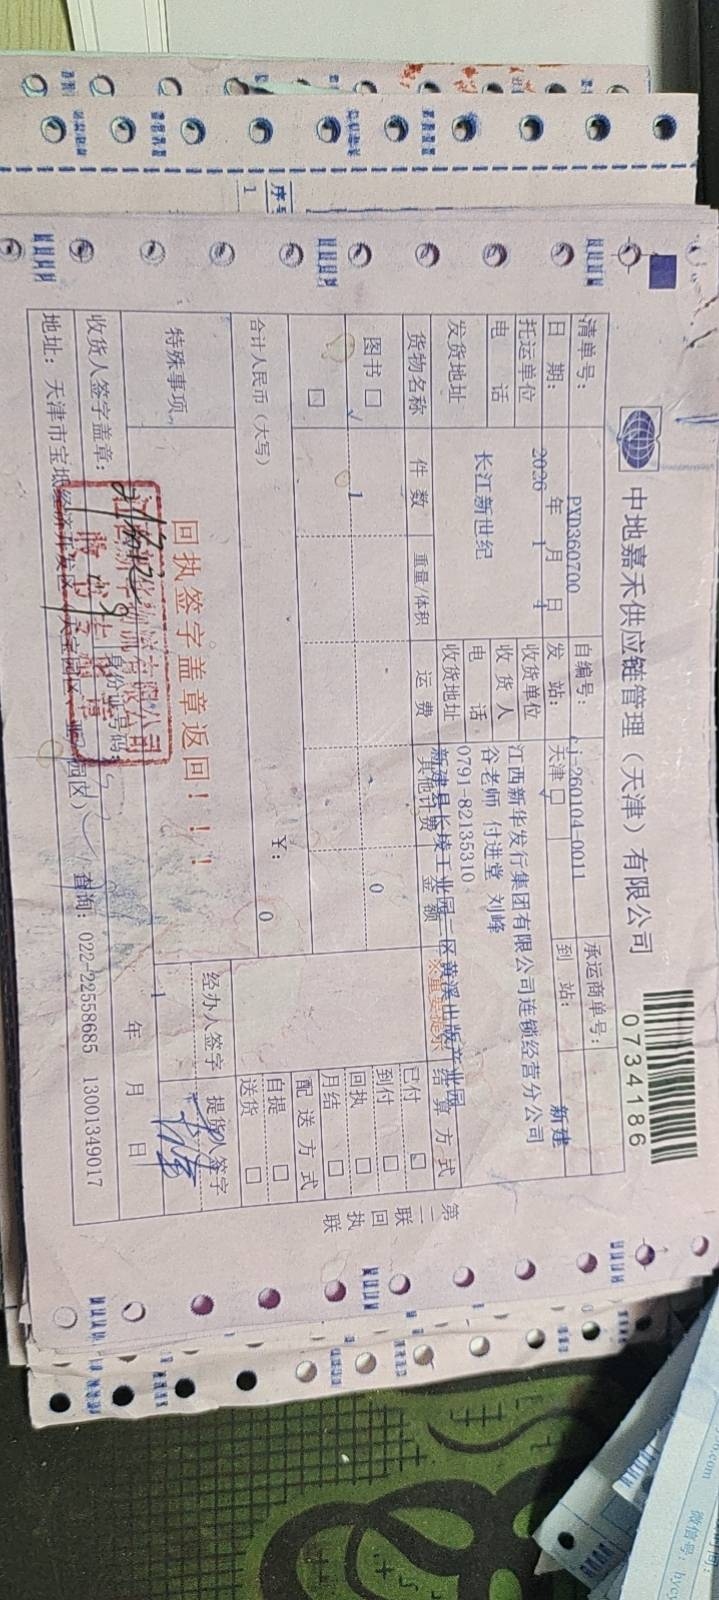 中地嘉禾供应链管理（天津）有限公司
0734186
清单号： PXD360700 自编号： cj-260104-0011 承运商单号：
日期： 2026 年 1 月 4 日 发站： 天津 到站： 新建
托运单位 收货单位 江西新华发行集团有限公司连锁经营分公司
电话 长江新世纪 收货人 谷老师 付进堂 刘峰
电话 0791-82135310
发货地址 收货地址 新建县长堎工业园二区黄溪出版产业园
货物名称 件数 重量/体积 运费 其他计费 金额 ※重要提示 结算方式
图书 1 0 已付
到付
回执
月结
合计人民币（大写） ¥： 0 配送方式
自提
送货
特殊事项 回执签字盖章返回！！！ 经办人签字 提货人签字
收货人签字盖章： 身份证号码： 1 年 月 日
地址：天津市宝坻经济开发区 园区） 查询：022-22558685 13001349017
第二联 回执联
序号
1
微信号：